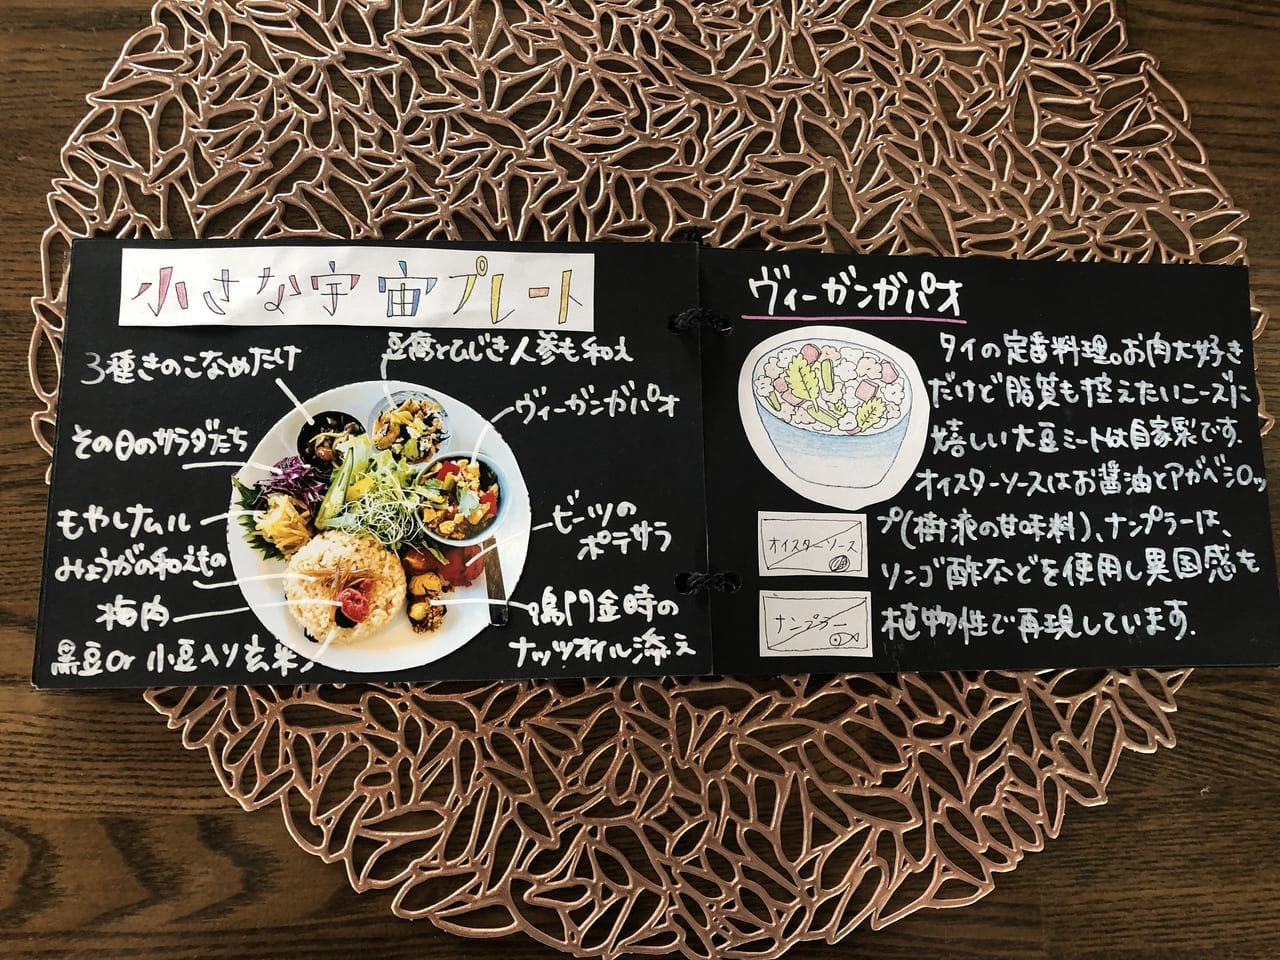 小さな宇宙プレート
3種きのこなめたけ
豆腐とひじき人参も和え
ヴィーガンガパオ
その日のサラダたち
もやしナムル
みょうがの和えもの
梅肉
黒豆or小豆入り玄米
ビーツの
ポテサラ
鳴門金時の
ナッツオイル添え
ヴィーガンガパオ
タイの定番料理。お肉大好き
だけど脂質も控えたいニーズに
嬉しい大豆ミートは自家製です。
オイスターソースはお醤油とアガベシロッ
プ(樹液の甘味料)、ナンプラーは、
リンゴ酢などを使用し異国感を
植物性で再現しています。
オイスターソース
ナンプラー